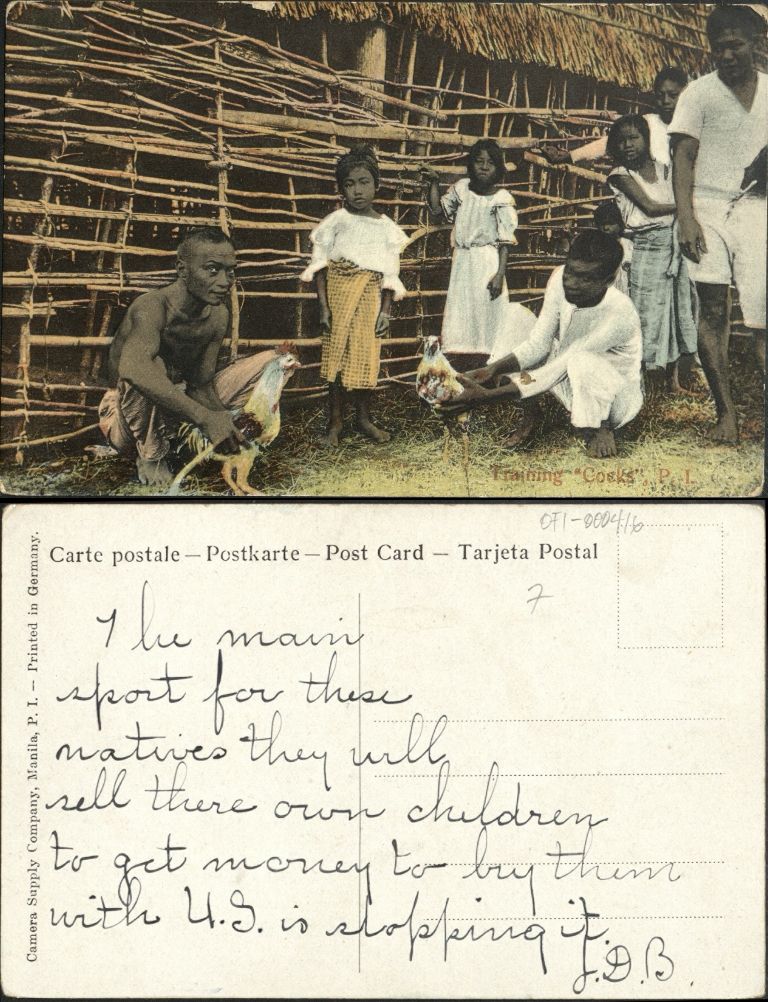 Training "Cocks", P. I.
OFI-0004/16
Carte postale — Postkarte — Post Card — Tarjeta Postal
7
The main
sport for these
natives they will
sell there own children
to get money to buy them
with U.S. is stopping it.
J.D.B.
Camera Supply Company, Manila, P. I. — Printed in Germany.